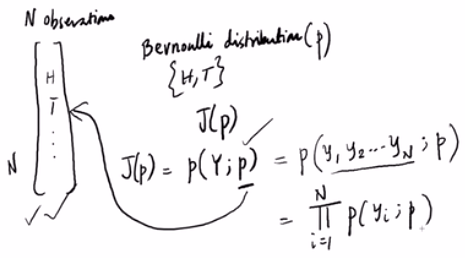 N observations
Bernoulli distribution(p)
{H,T}
H
T
⋮
N
J(p)
J(p) = p(Y;p) = p(y₁, y₂ ... y_N ; p)
= ∏_{i=1}^{N} p(y_i ; p)